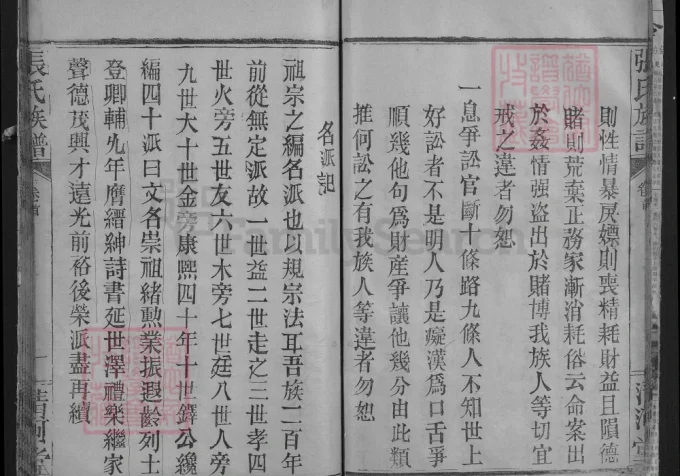 張氏族譜
則性情暴戾嫖則喪精耗財益且隕德
賭則荒棄正務家漸消耗俗云命案出
於姦情强盜出於賭博我族人等切宜
戒之違者勿恕
一息爭訟官斷十條路九條人不知世上
好訟者不是明人乃是癡漢為口舌爭
順幾他句為財產爭讓他幾分由此類
推何訟之有我族人等違者勿恕
名派記
祖宗之編名派也以規宗法耳吾族二百年
前從無定派故一世益二世走之三世孝四
世火旁五世友六世木旁七世廷八世人旁
九世大十世金旁康熙四十年十世鐸公纔
編四十派曰文名崇祖緒勲業振遐齡列士
登卿輔九年膺縉紳詩書延世澤禮樂繼家
聲德茂興才遠光前裕後榮派盡再續
張氏族譜
卷首
一
清河堂
FamilySearch